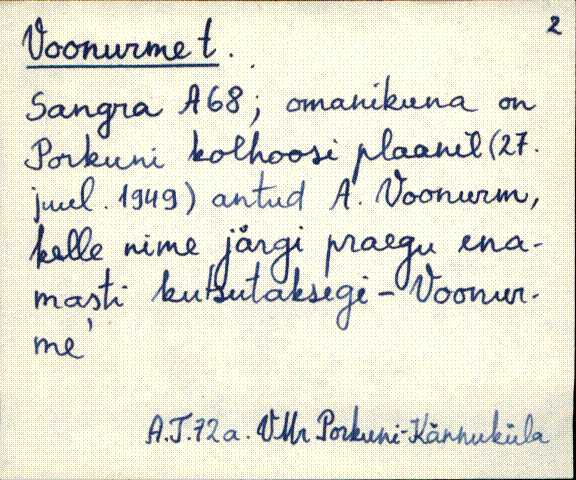 2
Voonurme t.
Sangra A68; omanikuna on
Porkuni kolhoosi plaanil (27.
juul. 1949) antud A. Voonurm,
kelle nime järgi praegu ena-
masti kutsutaksegi - Voonur-
me'
A.T.72a. VMr Porkuni-Kännuküla